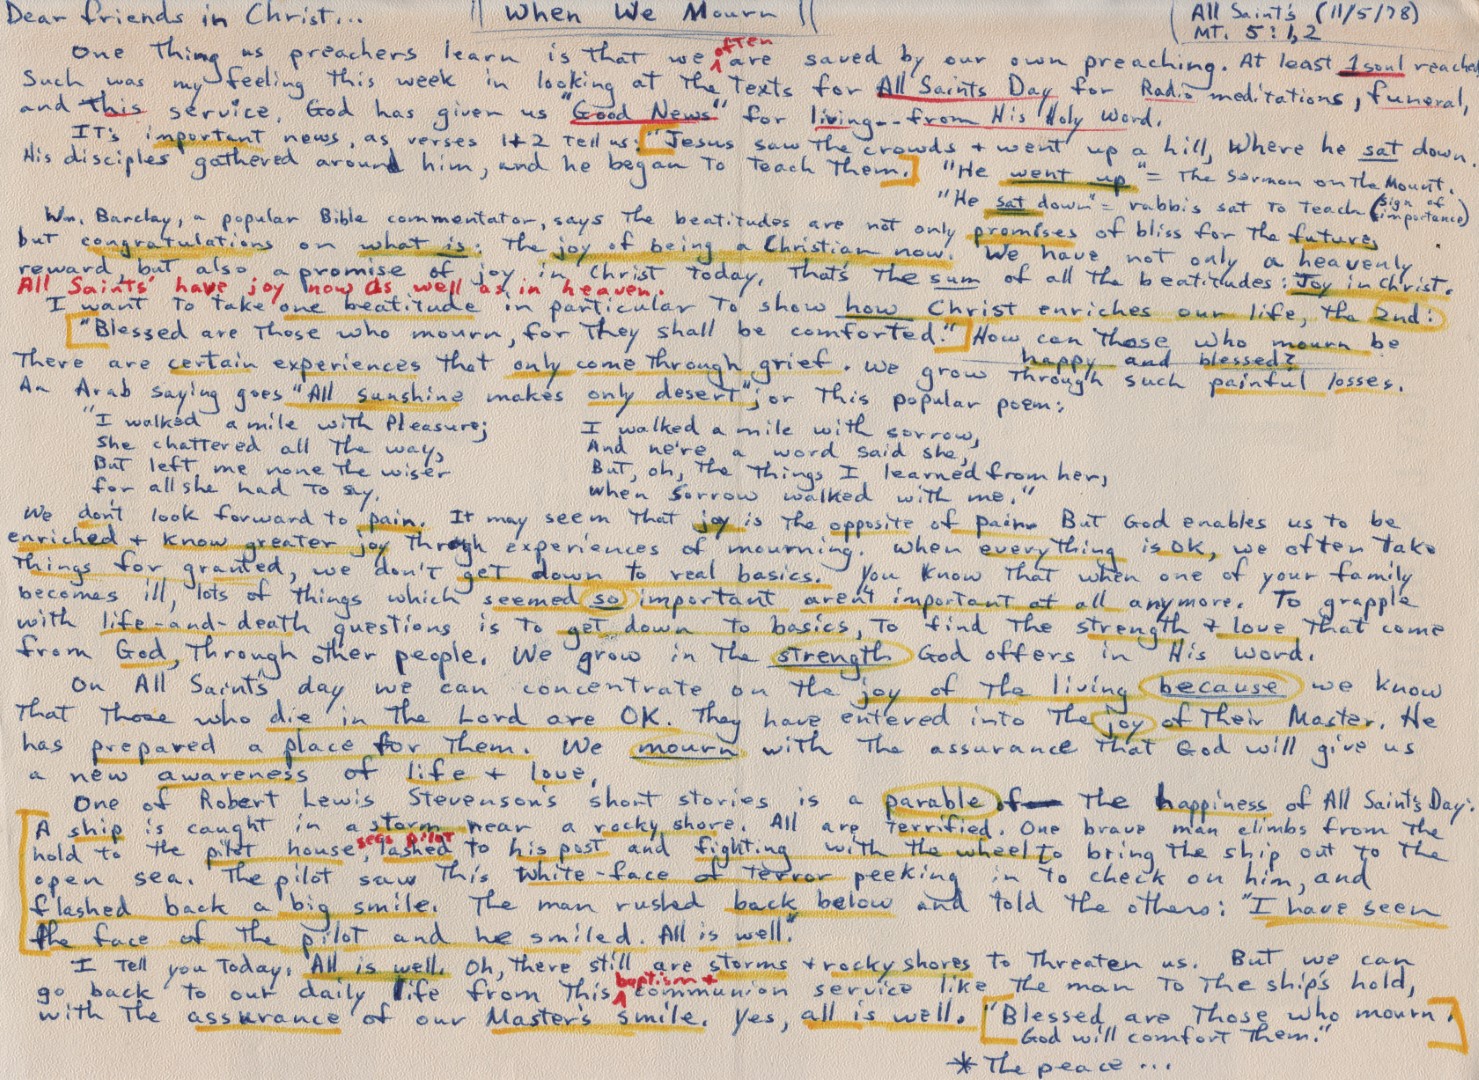 Dear friends in Christ... || When We Mourn || All Saint's (11/5/78)
MT. 5:1,2
One thing us preachers learn is that we often are saved by our own preaching. At least 1 soul reached
Such was my feeling this week in looking at the texts for All Saints Day for Radio meditations, funeral,
and this service. God has given us "Good News" for living--from His Holy Word.
It's important news, as verses 1+2 tell us: ["Jesus saw the crowds + went up a hill, where he sat down.
His disciples gathered around him, and he began to teach them.] "He went up" = The Sermon on the Mount.
"He sat down" = rabbis sat to teach (sign of importance)
Wm. Barclay, a popular Bible commentator, says the beatitudes are not only promises of bliss for the future,
but congratulations on what is: the joy of being a Christian now. We have not only a heavenly
reward, but also a promise of joy in Christ today. That's the sum of all the beatitudes: Joy in Christ.
All Saints' have joy now as well as in heaven.
I want to take one beatitude in particular to show how Christ enriches our life, the 2nd:
["Blessed are those who mourn, for they shall be comforted."] How can those who mourn be
happy and blessed?
There are certain experiences that only come through grief. We grow through such painful losses.
An Arab saying goes "All sunshine makes only desert"; or this popular poem:
"I walked a mile with Pleasure; I walked a mile with sorrow,
She chattered all the way, And ne're a word said she,
But left me none the wiser But, oh, the things I learned from her,
for all she had to say. When Sorrow walked with me."
We don't look forward to pain. It may seem that joy is the opposite of pain. But God enables us to be
enriched + know greater joy through experiences of mourning. When everything is OK, we often take
things for granted, we don't get down to real basics. You know that when one of your family
becomes ill, lots of things which seemed so important aren't important at all anymore. To grapple
with life-and-death questions is to get down to basics, to find the strength + love that come
from God, through other people. We grow in the strength God offers in His word.
On All Saint's day we can concentrate on the joy of the living because we know
that those who die in the Lord are OK. They have entered into the joy of their Master. He
has prepared a place for them. We mourn with the assurance that God will give us
a new awareness of life + love.
One of Robert Lewis Stevenson's short stories is a parable of the happiness of All Saint's Day:
[A ship is caught in a storm near a rocky shore. All are terrified. One brave man climbs from the
hold to the pilot house, sees pilot lashed to his post and fighting with the wheel to bring the ship out to the
open sea. The pilot saw this white-face of terror peeking in to check on him, and
flashed back a big smile. The man rushed back below and told the others: "I have seen
the face of the pilot and he smiled. All is well."
I tell you today, All is well. Oh, there still are storms + rocky shores to threaten us. But we can
go back to our daily life from this baptism + communion service like the man to the ship's hold,
with the assurance of our Master's smile. Yes, all is well. ["Blessed are those who mourn.
God will comfort them."]
* The peace ...